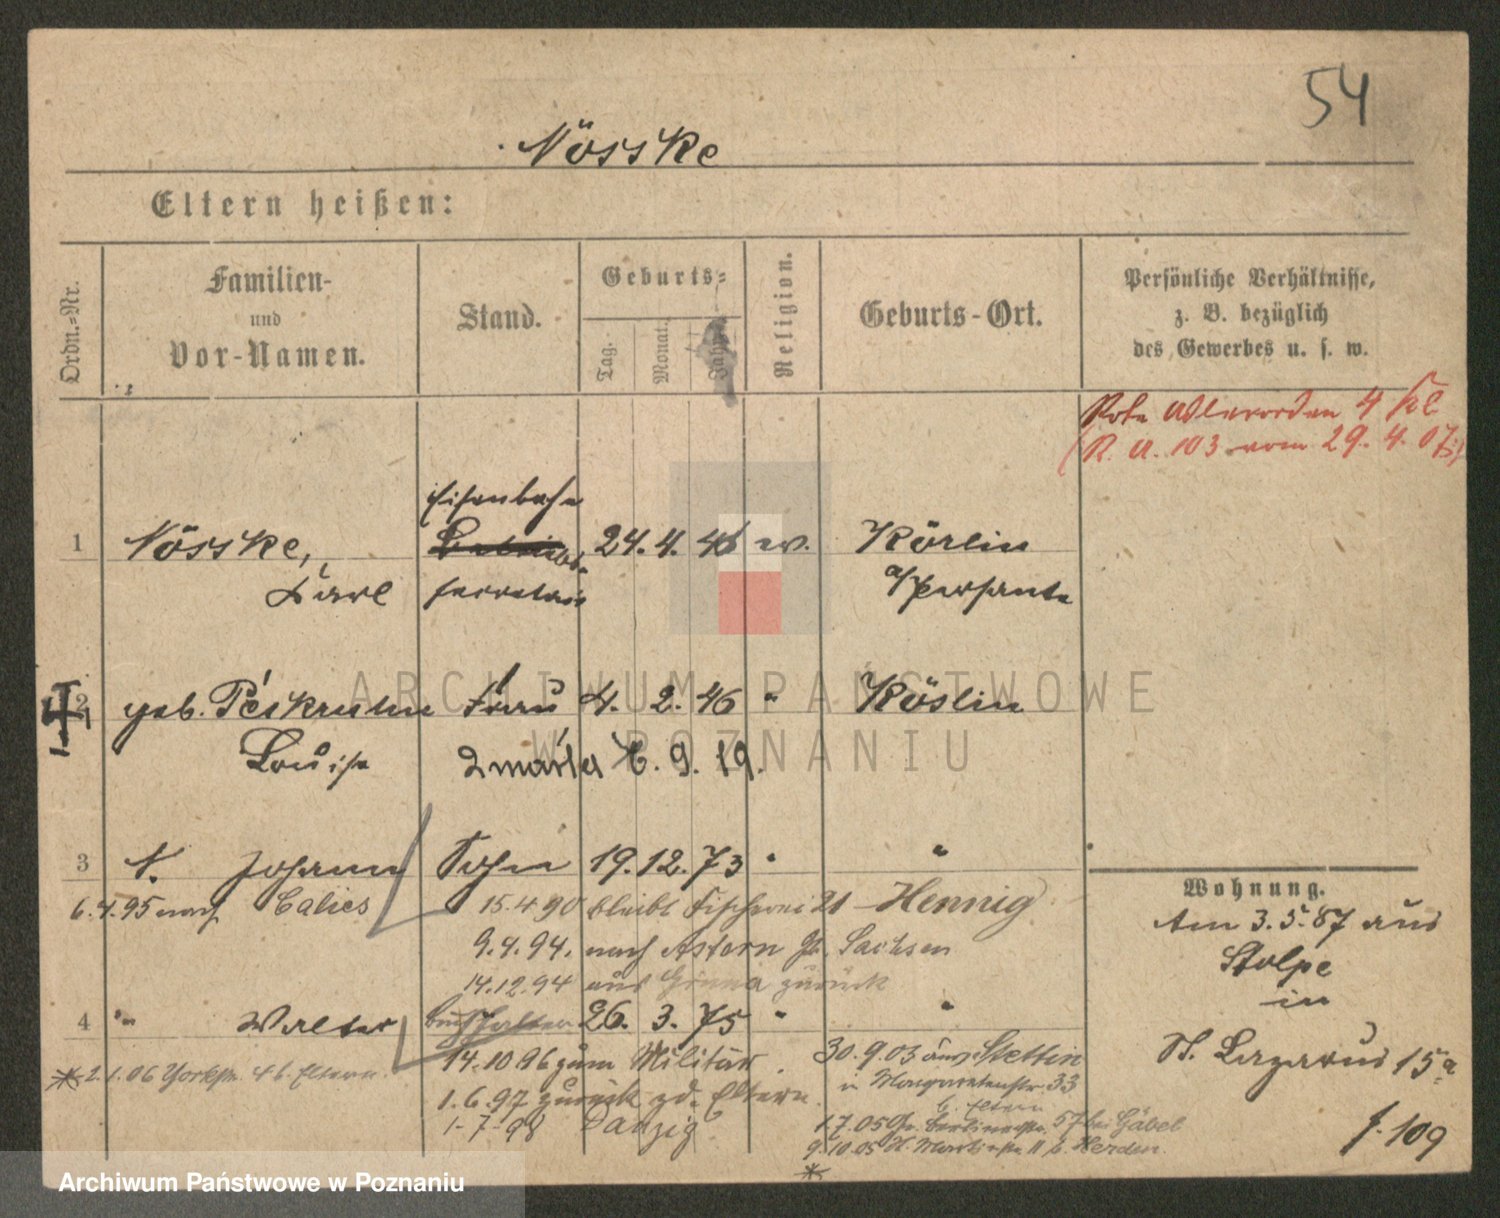 54
Nösske
Eltern heißen:
Ordn.-Nr.
Familien-
und
Vor-Namen.
Stand.
Geburts-
Tag.
Monat.
Jahr.
Religion.
Geburts-Ort.
Persönliche Verhältnisse,
z. B. bezüglich
des Gewerbes u. s. w.
Rote Adlerorden 4 Kl
(R. A. 103 vom 29. 4. 07.)
Eisenbahn
1 Nösske, 24. 4. 46 ev. Körlin
Karl secretair a/Persante
2 geb. Frau 4. 2. 46 " Köslin
Louise zmarła 6. 9. 19.
3 N. Johann Sohn 19. 12. 73 " "
6. 4. 95 nach Calies 15. 4 90 bleibt Fischerei 21 Hennig
9. 4. 94. nach Sachsen
14. 12. 94 aus zurück
4 " Walter Buchhalter 26. 3. 75 " "
14. 10 96 zum Militär. 30. 9. 03 aus Stettin
2. 1. 06 Yorkstr. 4 b. Eltern. in Margaretenstr. 33
b. Eltern
1. 6. 97 zurück zd. Eltern.
1-7-98 Danzig
1. 7. 05 Gr. Berlinerstr. 57 bei Gäbel
9. 10. 05 St. Martinstr. 11 b. Herden.
Wohnung.
Am 3. 5. 87 aus
Stolpe
in
St. Lazarus 15a
f. 109
ARCHIWUM PAŃSTWOWE
W POZNANIU
Archiwum Państwowe w Poznaniu